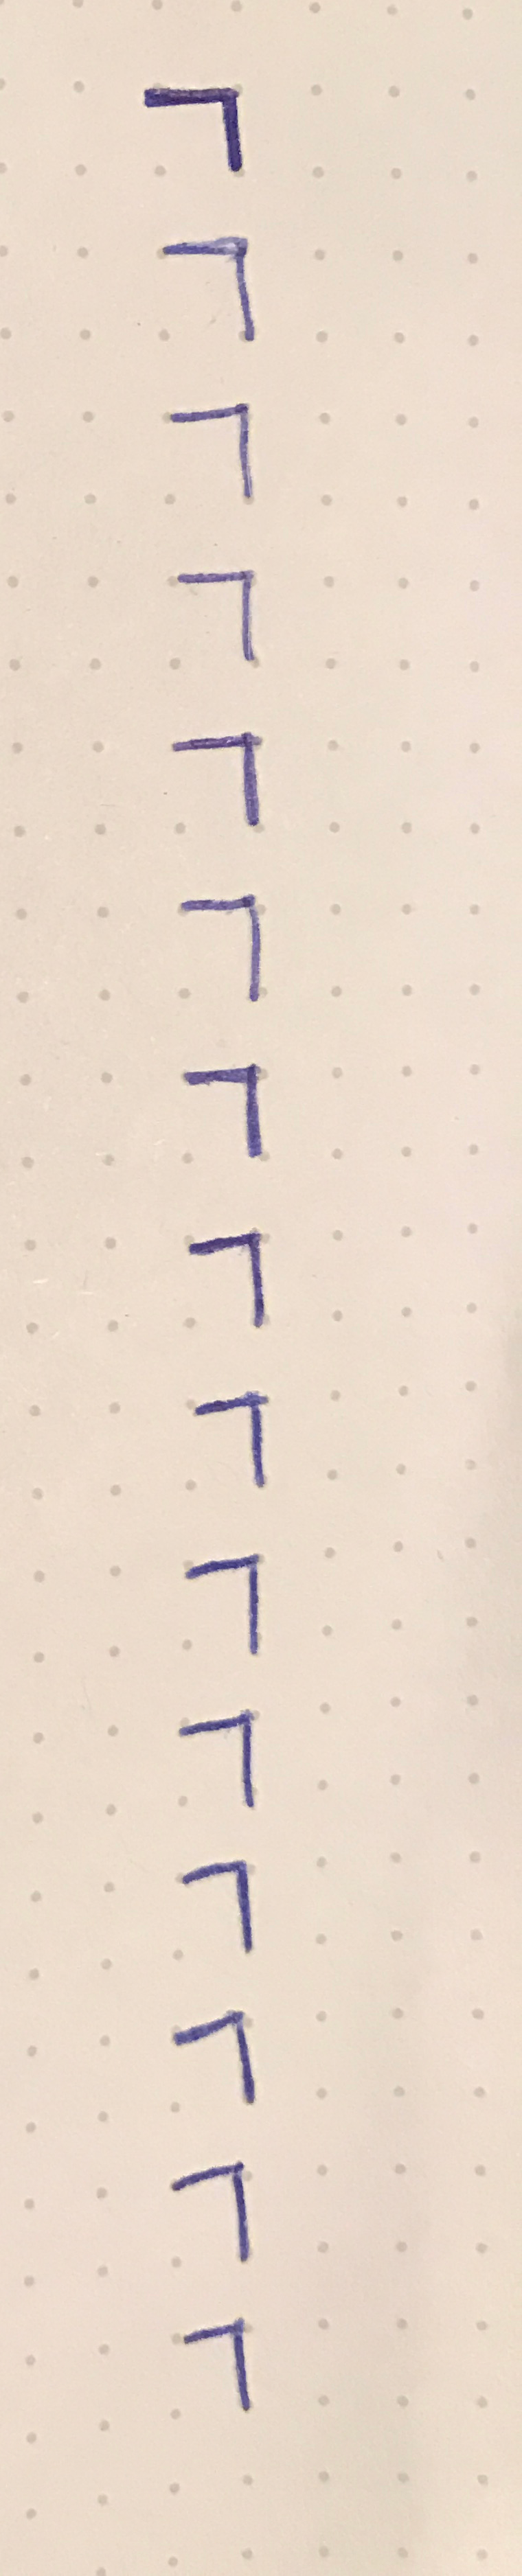 ㄱ
ㄱ
ㄱ
ㄱ
ㄱ
ㄱ
ㄱ
ㄱ
ㄱ
ㄱ
ㄱ
ㄱ
ㄱ
ㄱ
ㄱ